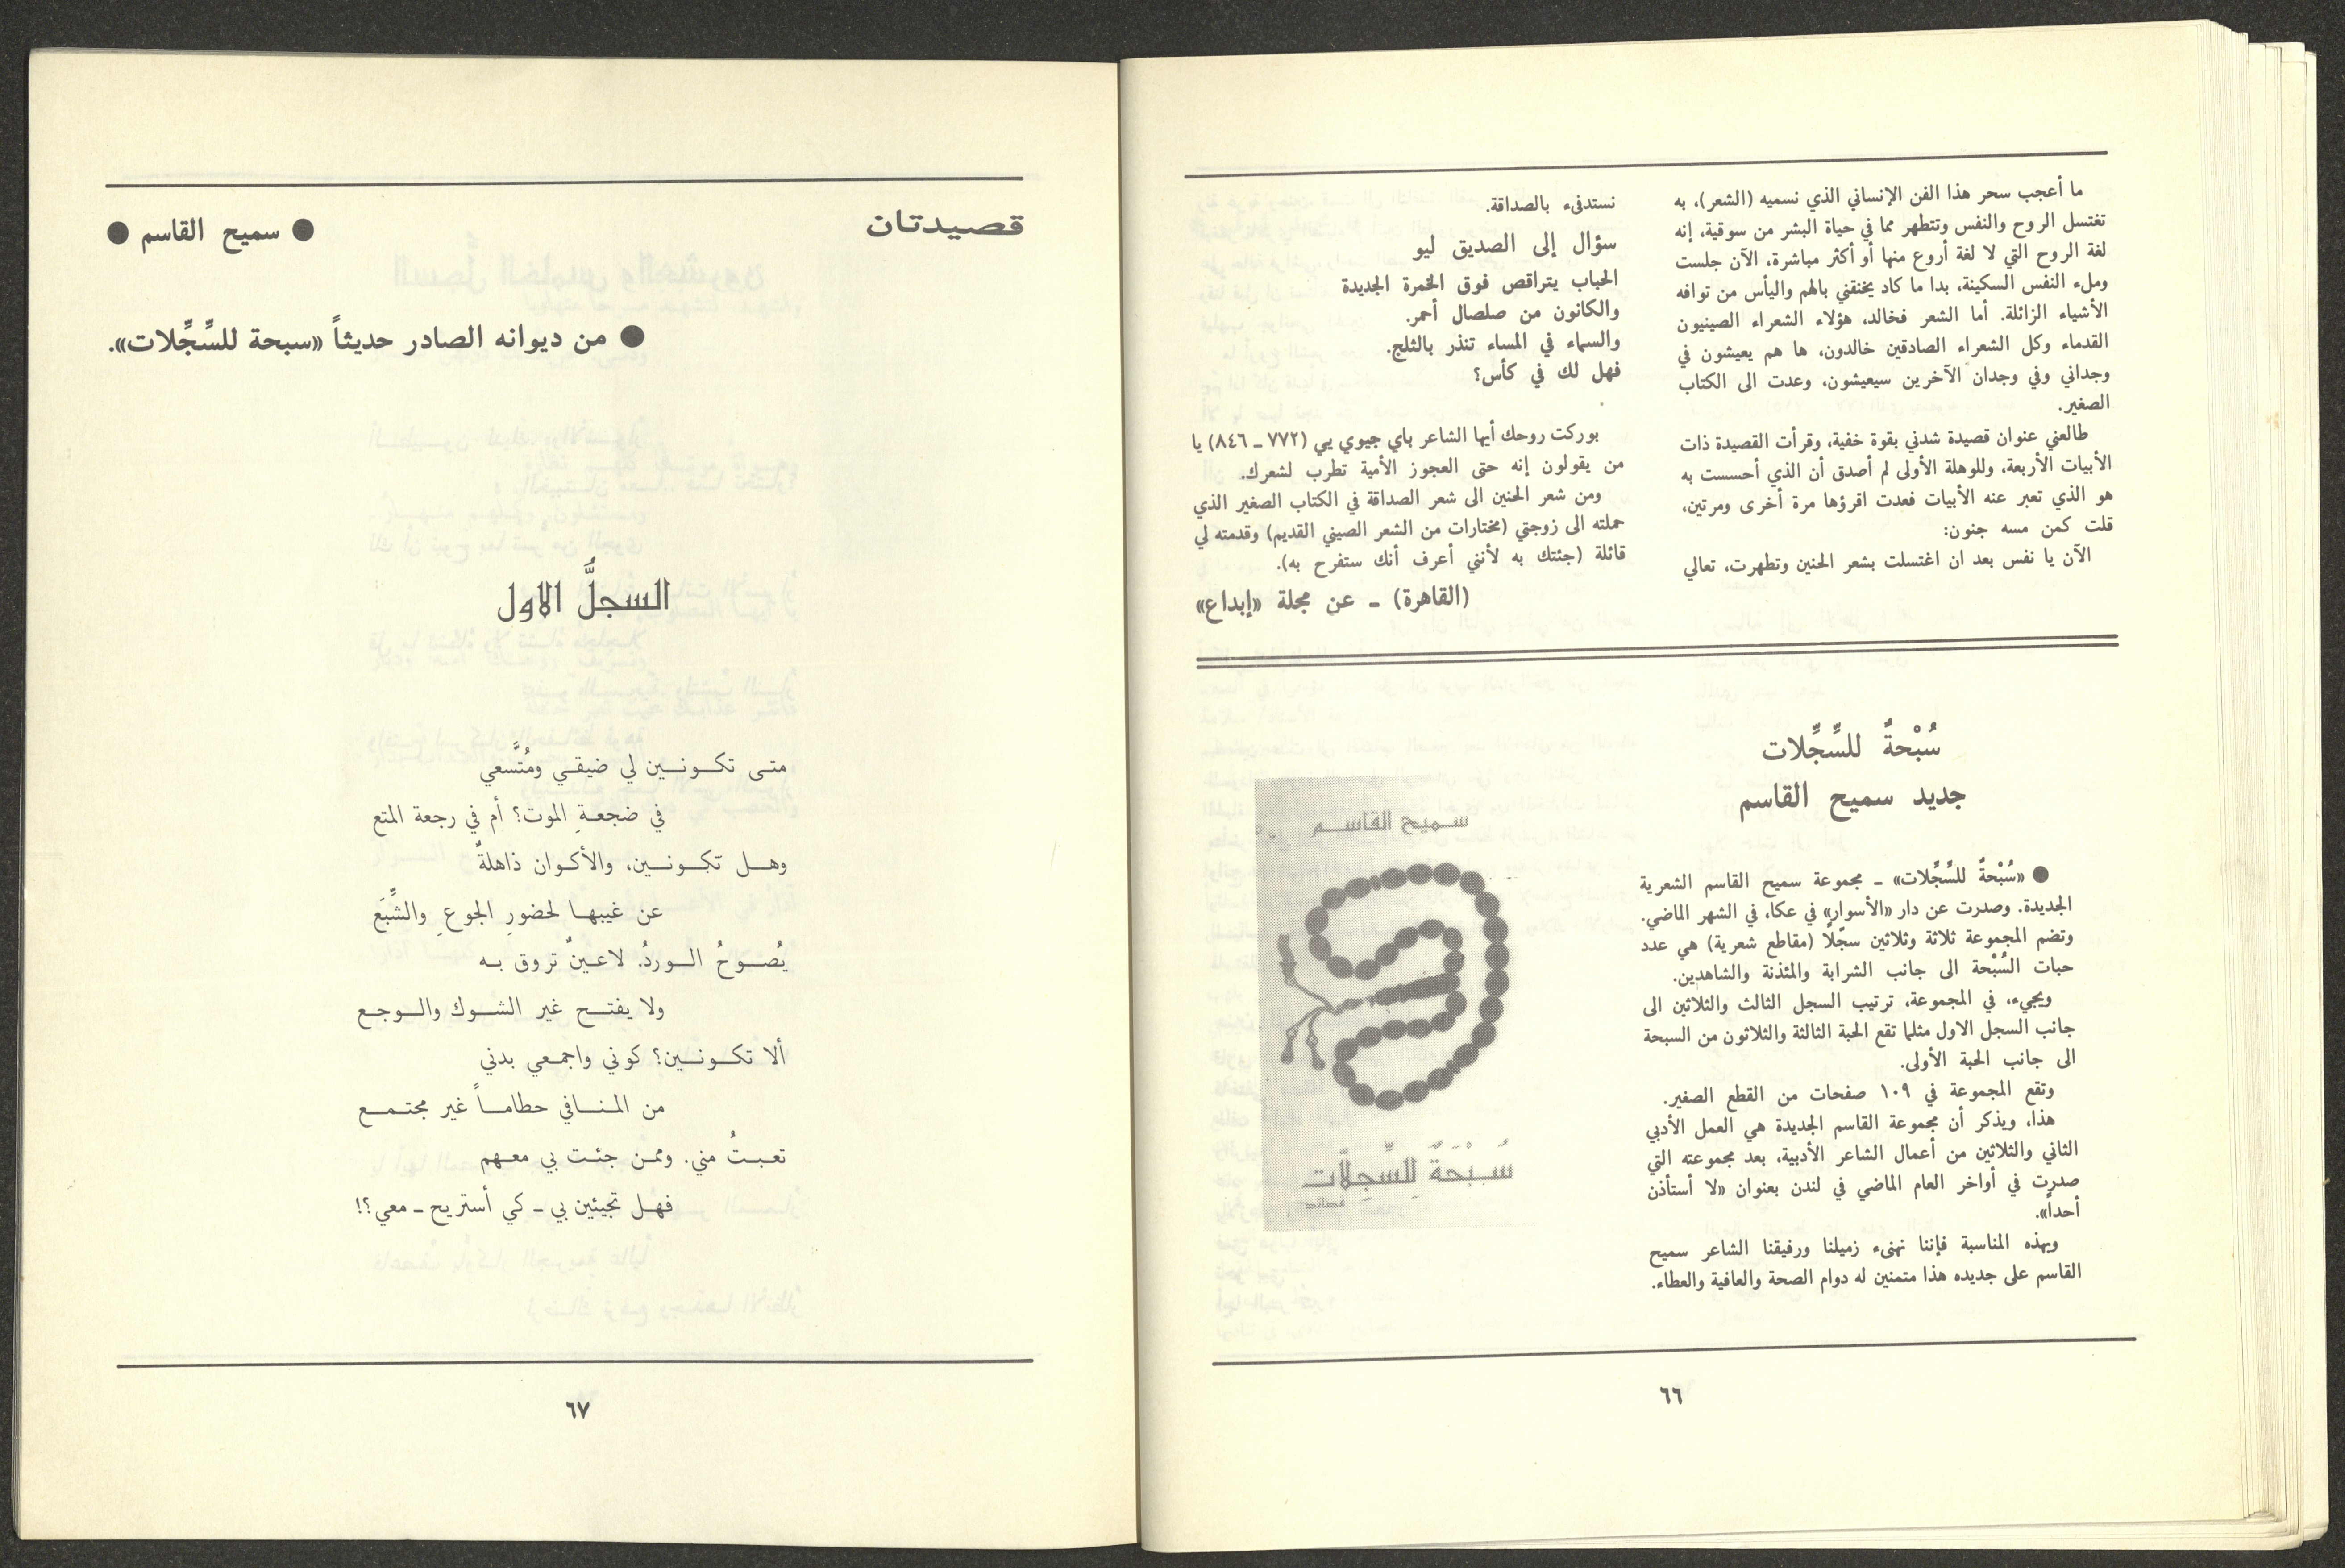 ما أعجب سحر هذا الفن الإنساني الذي نسميه (الشعر)، به
تغتسل الروح والنفس وتتطهر مما في حياة البشر من سوقية، إنه
لغة الروح التي لا لغة أروع منها أو أكثر مباشرة، الآن جلست
وملء النفس السكينة، بدا ما كاد يخنقني بالهم واليأس من توافه
الأشياء الزائلة. أما الشعر فخالد، هؤلاء الشعراء الصينيون
القدماء وكل الشعراء الصادقين خالدون، ها هم يعيشون في
وجداني وفي وجدان الآخرين سيعيشون، وعدت الى الكتاب
الصغير.
طالعني عنوان قصيدة شدني بقوة خفية، وقرأت القصيدة ذات
الأبيات الأربعة، وللوهلة الأولى لم أصدق أن الذي أحسست به
هو الذي تعبر عنه الأبيات فعدت اقرؤها مرة أخرى ومرتين،
قلت كمن مسه جنون:
الآن يا نفس بعد ان اغتسلت بشعر الحنين وتطهرت، تعالي
نستدفىء بالصداقة.
سؤال إلى الصديق ليو
الحباب يتراقص فوق الخمرة الجديدة
والكانون من صلصال أحمر.
والسماء في المساء تنذر بالثلج.
فهل لك في كأس؟
بوركت روحك أيها الشاعر باي جيوي يي (٧٧٢ ـ ٨٤٦) يا
من يقولون إنه حتى العجوز الأمية تطرب لشعرك.
ومن شعر الحنين الى شعر الصداقة في الكتاب الصغير الذي
حملته الى زوجتي (مختارات من الشعر الصيني القديم) وقدمته لي
قائلة (جئتك به لأنني أعرف أنك ستفرح به).
(القاهرة) ـ عن مجلة «إبداع»
سُبْحةٌ للسِّجِّلات
جديد سميح القاسم
● «سُبْحةٌ للسِّجِّلات» ـ مجموعة سميح القاسم الشعرية
الجديدة. وصدرت عن دار «الأسوار» في عكا، في الشهر الماضي.
وتضم المجموعة ثلاثة وثلاثين سجّلاً (مقاطع شعرية) هي عدد
حبات السُبْحة الى جانب الشرابة والمئذنة والشاهدين.
ويجيء، في المجموعة، ترتيب السجل الثالث والثلاثين الى
جانب السجل الاول مثلما تقع الحبة الثالثة والثلاثون من السبحة
الى جانب الحبة الأولى.
وتقع المجموعة في ١٠٩ صفحات من القطع الصغير.
هذا، ويذكر أن مجموعة القاسم الجديدة هي العمل الأدبي
الثاني والثلاثين من أعمال الشاعر الأدبية، بعد مجموعته التي
صدرت في أواخر العام الماضي في لندن بعنوان «لا أستأذن
أحداً».
وبهذه المناسبة فإننا نهنىء زميلنا ورفيقنا الشاعر سميح
القاسم على جديده هذا متمنين له دوام الصحة والعافية والعطاء.
سميح القاسم
سُبْحَةٌ لِلسِّجِلّات
قصائد
٦٦
قصيدتان
● سميح القاسم ●
● من ديوانه الصادر حديثاً «سبحة للسِّجِّلات».
السجلُّ الاول
متى تكونين لي ضيقي ومُتَّسعي
في ضجعةِ الموت؟ أم في رجعة المتع
وهل تكونين، والأكوان ذاهلةٌ
عن غيبها لحضورِ الجوعِ والشِّبَع
يُصوحُ الوردُ. لاعينٌ تروق به
ولا يفتح غير الشوك والوجع
ألا تكونين؟ كوني واجمعي بدني
من المنافي حطاماً غير مجتمع
تعبتُ مني. وممن جئت بي معهم
فهل تجيئين بي ـ كي أستريح ـ معي؟!
٦٧